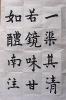 一渠其清
若鏡味甘
如醴南注